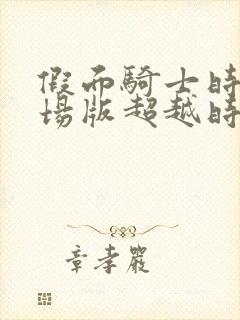 假面騎士時
場版超越時
章孝嚴